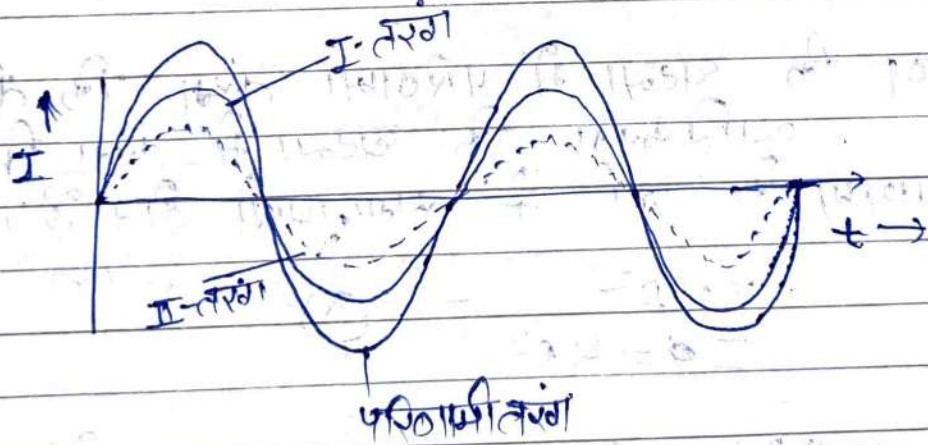 I-तरंग
I
t →
II-तरंग
परिणामी तरंग